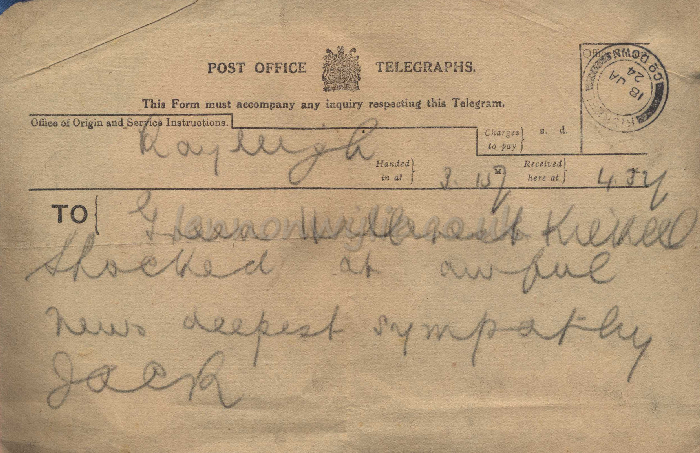 POST OFFICE TELEGRAPHS.
This Form must accompany any inquiry respecting this Telegram.
Office of Origin and Service Instructions.
Rayleigh
Charges to pay
s. d.
Handed in at
Received here at
TO
Shocked at awful
news deepest sympathy
Jack
CO DOWN
18 JA
24